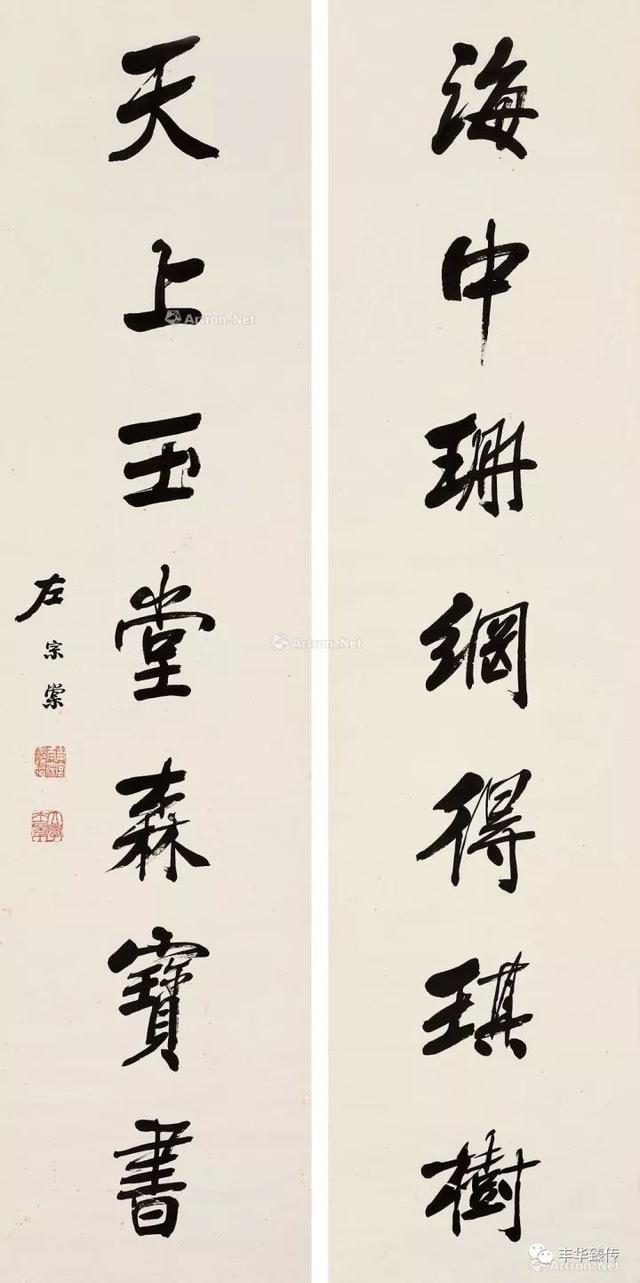 海中珊網得琪樹
天上玉堂森寶書
左宗棠
Artron.Net
Artron.Net
丰华臻传